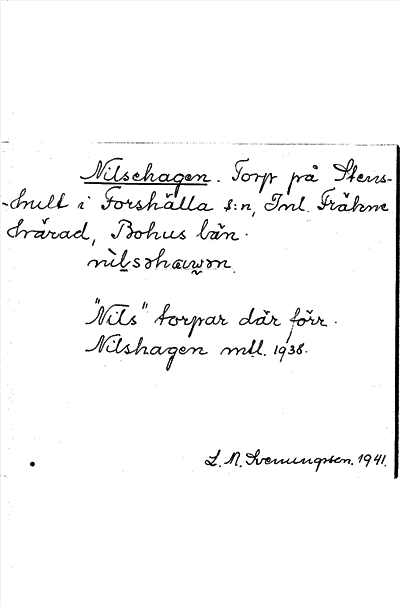 Nilsehagen. Torp på Stens-
-hult i Forshälla s:n, Inl. Fräkne
härad, Bohus län.
nìlsəhawən.
"Nils" torpar där förr.
Nilshagen mtl. 1938.
L. N. Svenungsson. 1941.